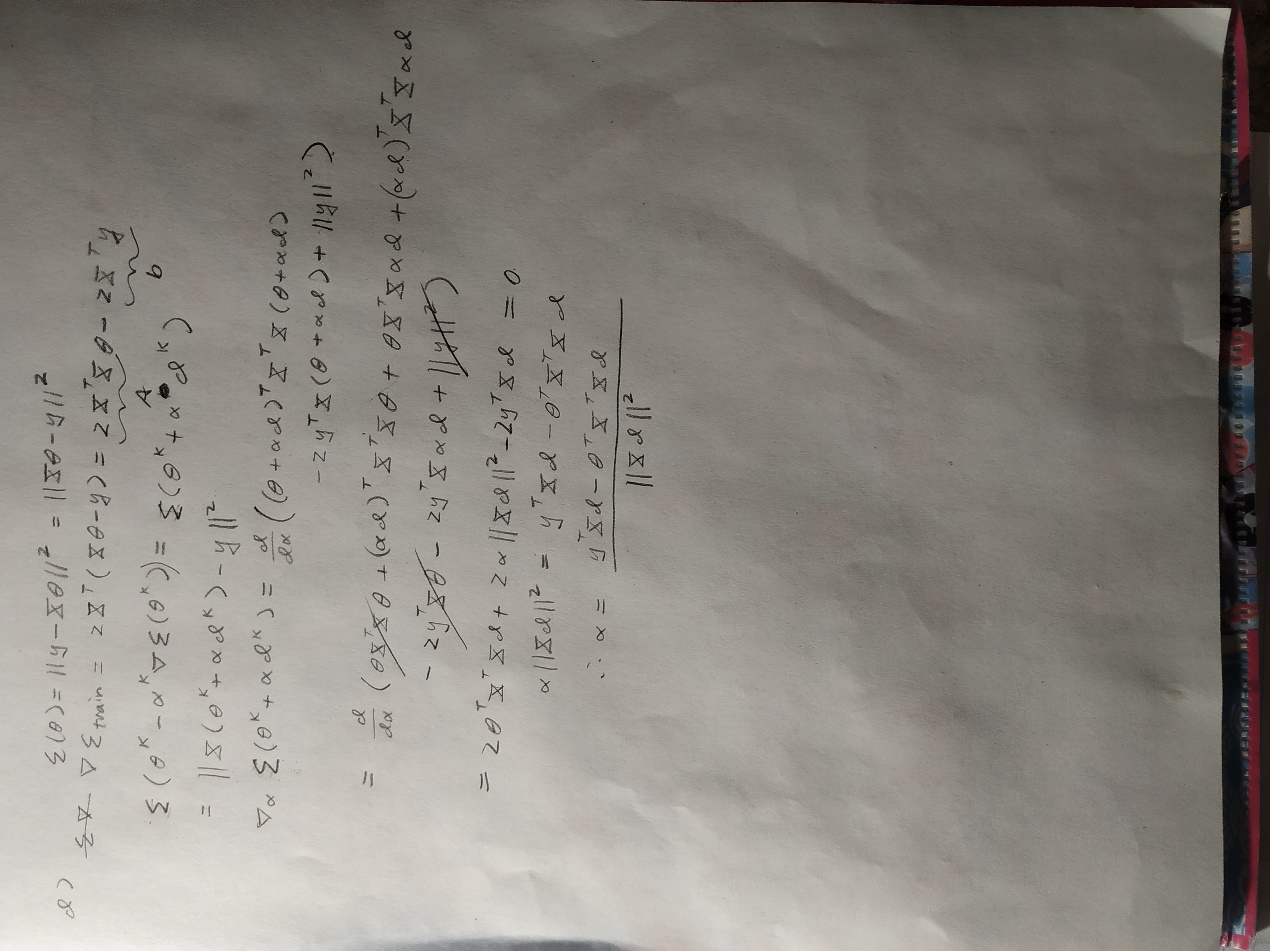 d) Ɛ(θ) = ||y - Xθ||² = ||Xθ - y||²
∇Ɛtrain = 2Xᵀ(Xθ - y) = 2XᵀXθ - 2Xᵀy
A b
Ɛ(θᴷ - αᴷ∇Ɛ(θᴷ)) = Ɛ(θᴷ + α dᴷ)
= ||X(θᴷ + αdᴷ) - y||²
∇α Ɛ(θᴷ + αdᴷ) = d/dα ((θ + αd)ᵀXᵀX(θ + αd)
- 2yᵀX(θ + αd) + ||y||²)
= d/dα (θXᵀXθ + (αd)ᵀXᵀXθ + θXᵀXαd + (αd)ᵀXᵀXαd
- 2yᵀXθ - 2yᵀXαd + ||y||²)
= 2θᵀXᵀXd + 2α||Xd||² - 2yᵀXd = 0
α||Xd||² = yᵀXd - θᵀXᵀXd
∴ α = yᵀXd - θᵀXᵀXd
||Xd||²